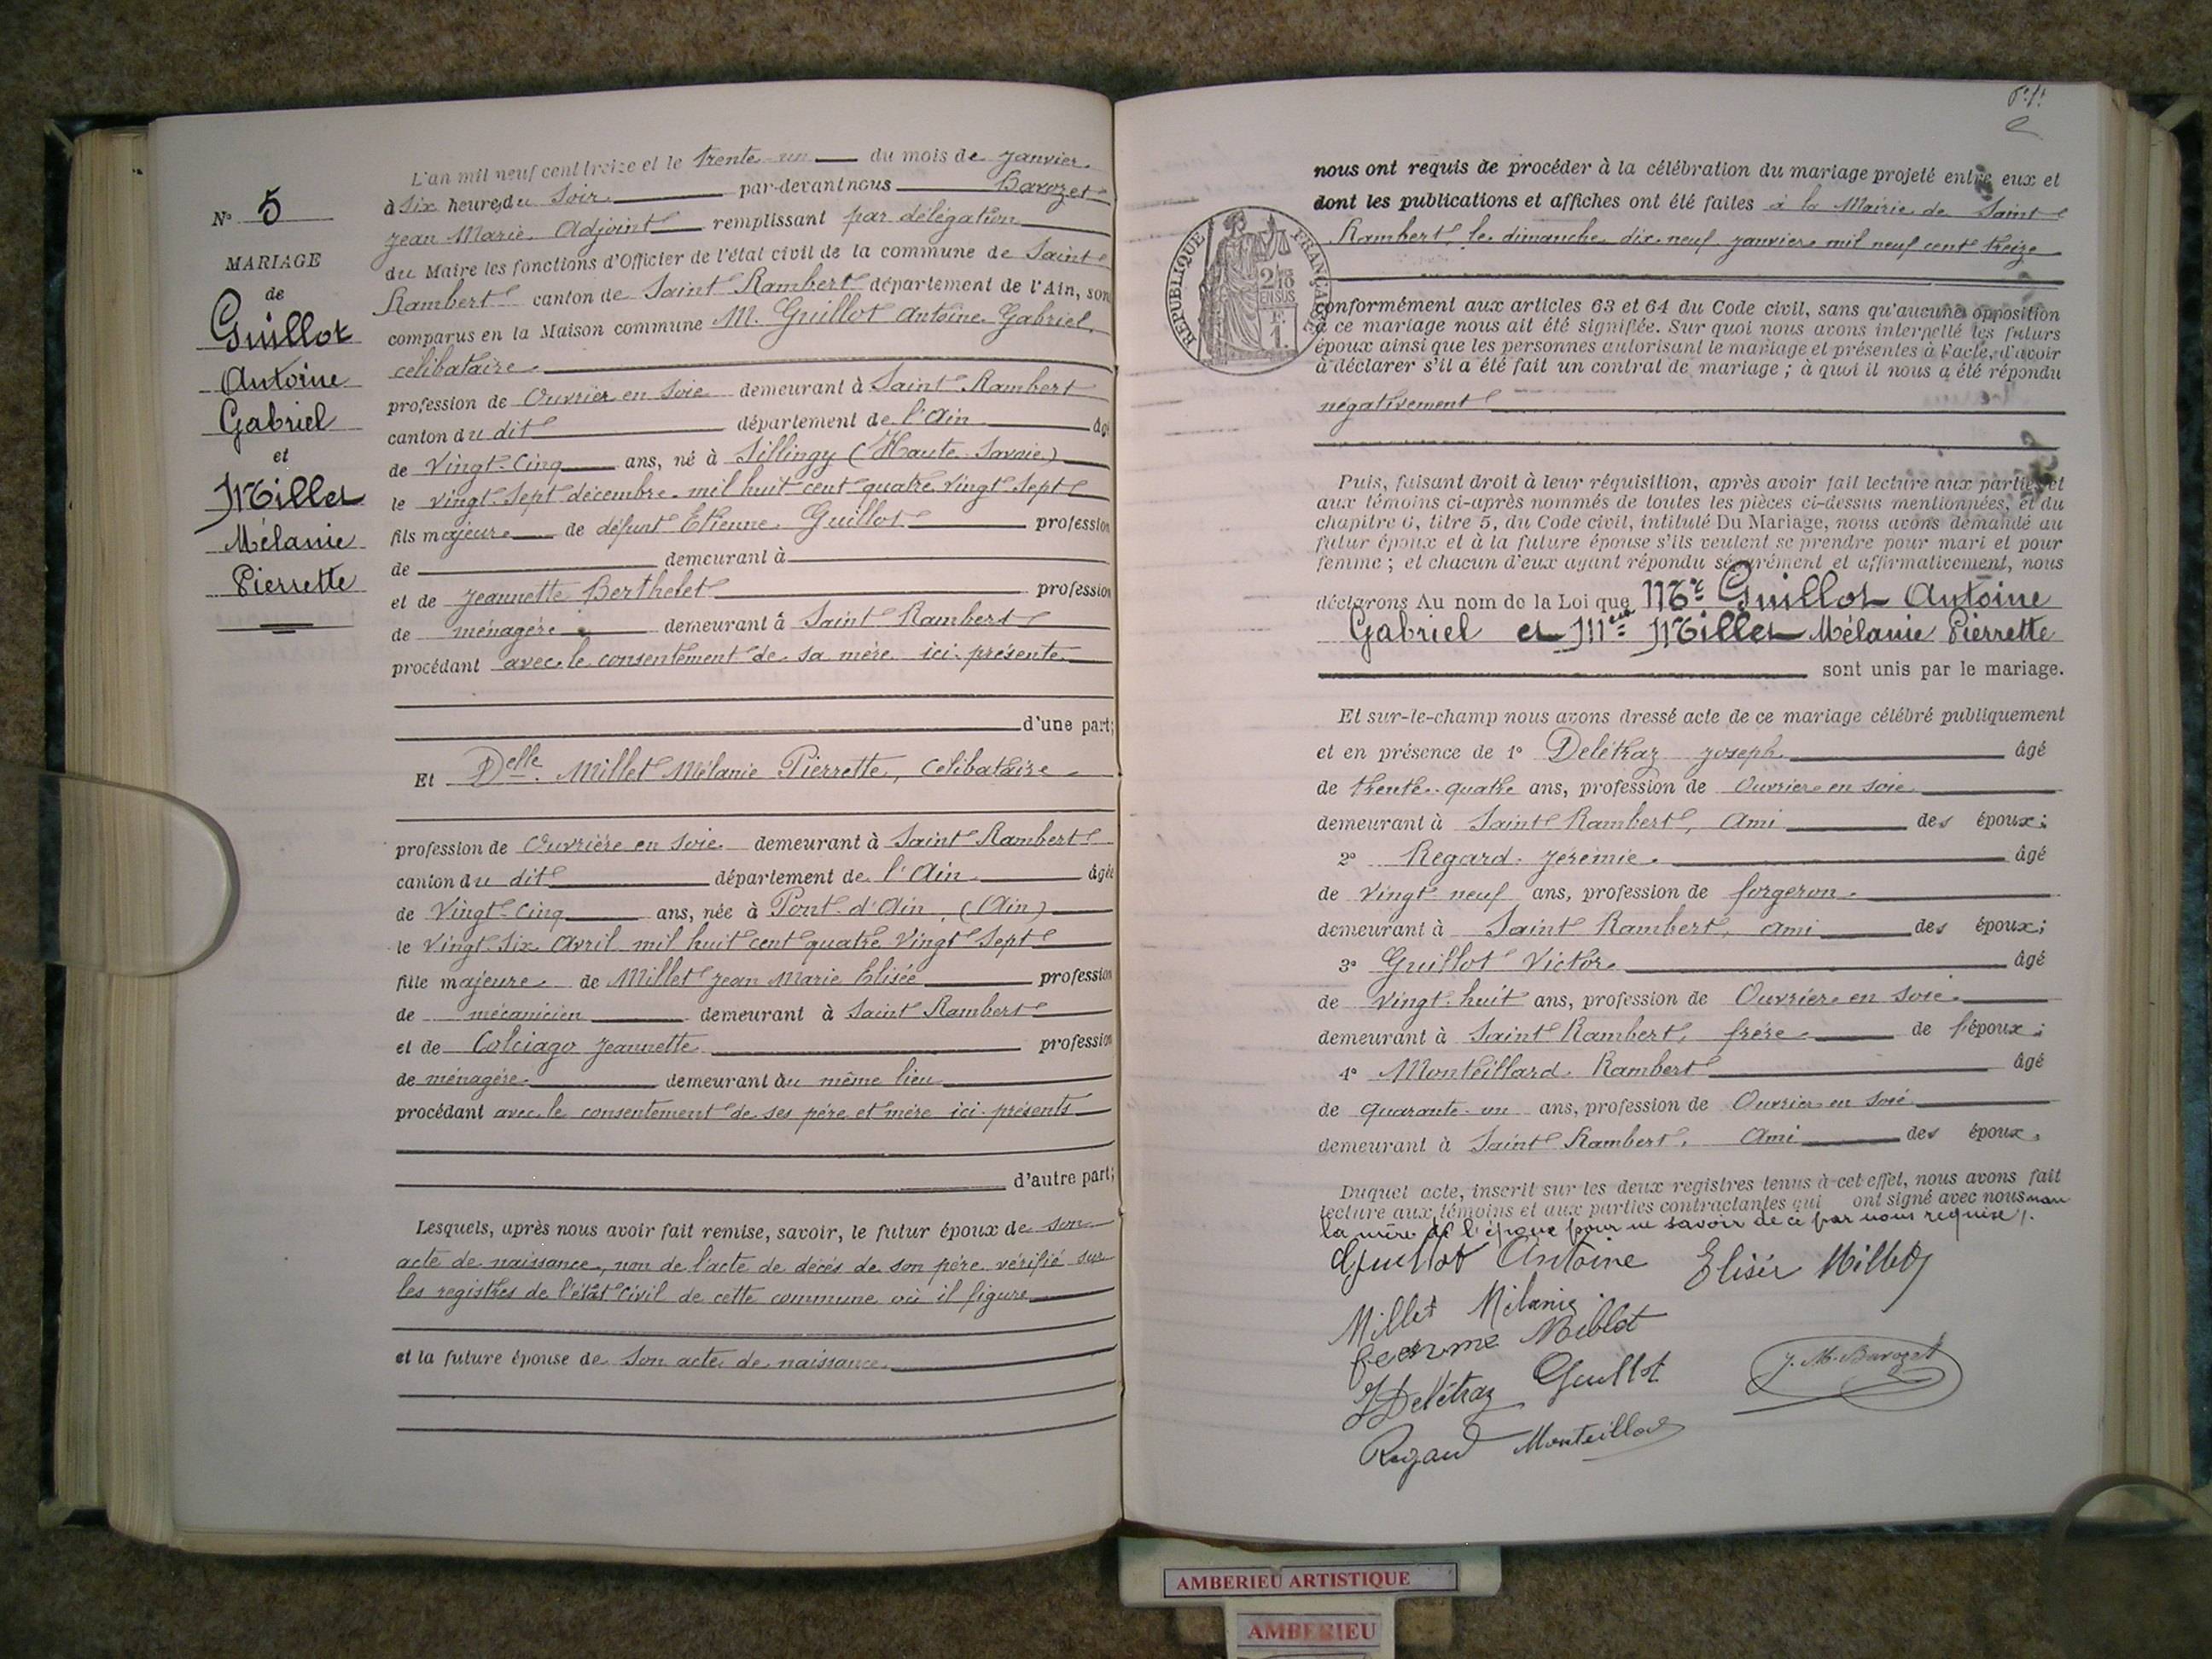 N° 5
MARIAGE
de
Guillot
Antoine
Gabriel
et
Millet
Mélanie
Pierrette
L'an mil neuf cent treize et le trente-un du mois de janvier
à six heures du soir par-devant nous Barozet
Jean Marie, Adjoint remplissant par délégation
du Maire les fonctions d'Officier de l'état civil de la commune de Saint
Rambert canton de Saint Rambert département de l'Ain, son
comparus en la Maison commune M. Guillot Antoine Gabriel,
célibataire
profession de Ouvrier en soie demeurant à Saint Rambert
canton du dit département de l'Ain âgé
de vingt-cinq ans, né à Sillingy (Haute-Savoie)
le vingt-sept décembre mil huit cent quatre vingt sept
fils majeur de défunt Etienne Guillot profession
de demeurant à
et de Jeannette Berthelet profession
de ménagère demeurant à Saint Rambert
procédant avec le consentement de sa mère ici présente
d'une part;
Et Delle Millet Mélanie Pierrette, célibataire
profession de Ouvrière en soie demeurant à Saint Rambert
canton du dit département de l'Ain âgée
de vingt-cinq ans, née à Pont-d'Ain, (Ain)
le vingt six avril mil huit cent quatre vingt sept
fille majeure de Millet Jean Marie Elisée profession
de mécanicien demeurant à Saint Rambert
et de Colciago Jeannette profession
de ménagère demeurant au même lieu
procédant avec le consentement de ses père et mère ici présents
d'autre part;
Lesquels, après nous avoir fait remise, savoir, le futur époux de son
acte de naissance, non de l'acte de décès de son père vérifié sur
les registres de l'état civil de cette commune où il figure
et la future épouse de son acte de naissance
nous ont requis de procéder à la célébration du mariage projeté entre eux et
dont les publications et affiches ont été faites à la Mairie de Saint
Rambert, le dimanche dix-neuf janvier mil neuf cent treize
RÉPUBLIQUE FRANÇAISE
2/10
EN SUS
F.
1.
conformément aux articles 63 et 64 du Code civil, sans qu'aucune opposition
à ce mariage nous ait été signifiée. Sur quoi nous avons interpellé les futurs
époux ainsi que les personnes autorisant le mariage et présentes à l'acte, d'avoir
à déclarer s'il a été fait un contrat de mariage ; à quoi il nous a été répondu
négativement
Puis, faisant droit à leur réquisition, après avoir fait lecture aux parties et
aux témoins ci-après nommés de toutes les pièces ci-dessus mentionnées, et du
chapitre 6, titre 5, du Code civil, intitulé Du Mariage, nous avons demandé au
futur époux et à la future épouse s'ils veulent se prendre pour mari et pour
femme ; et chacun d'eux ayant répondu séparément et affirmativement, nous
déclarons Au nom de la Loi que Mr Guillot Antoine
Gabriel et Melle Millet Mélanie Pierrette
sont unis par le mariage.
Et sur-le-champ nous avons dressé acte de ce mariage célébré publiquement
et en présence de 1° Deléthaz Joseph âgé
de trente-quatre ans, profession de Ouvrier en soie
demeurant à Saint Rambert, ami des époux;
2° Regard Jérémie âgé
de vingt neuf ans, profession de forgeron
demeurant à Saint Rambert, ami des époux;
3° Guillot Victor âgé
de vingt-huit ans, profession de Ouvrier en soie
demeurant à Saint Rambert, frère de l'époux;
4° Monteillard Rambert âgé
de quarante-un ans, profession de Ouvrier en soie
demeurant à Saint Rambert, ami des époux.
Duquel acte, inscrit sur les deux registres tenus à cet effet, nous avons fait
lecture aux témoins et aux parties contractantes qui ont signé avec nous non
la mère de l'époux pour ne savoir de ce par nous requise.
Guillot Antoine Elisée Millet
Millet Mélanie
femme Millot
J Delétraz Guillot J. M. Barozet
Regard Monteillard
AMBERIEU ARTISTIQUE
AMBERIEU